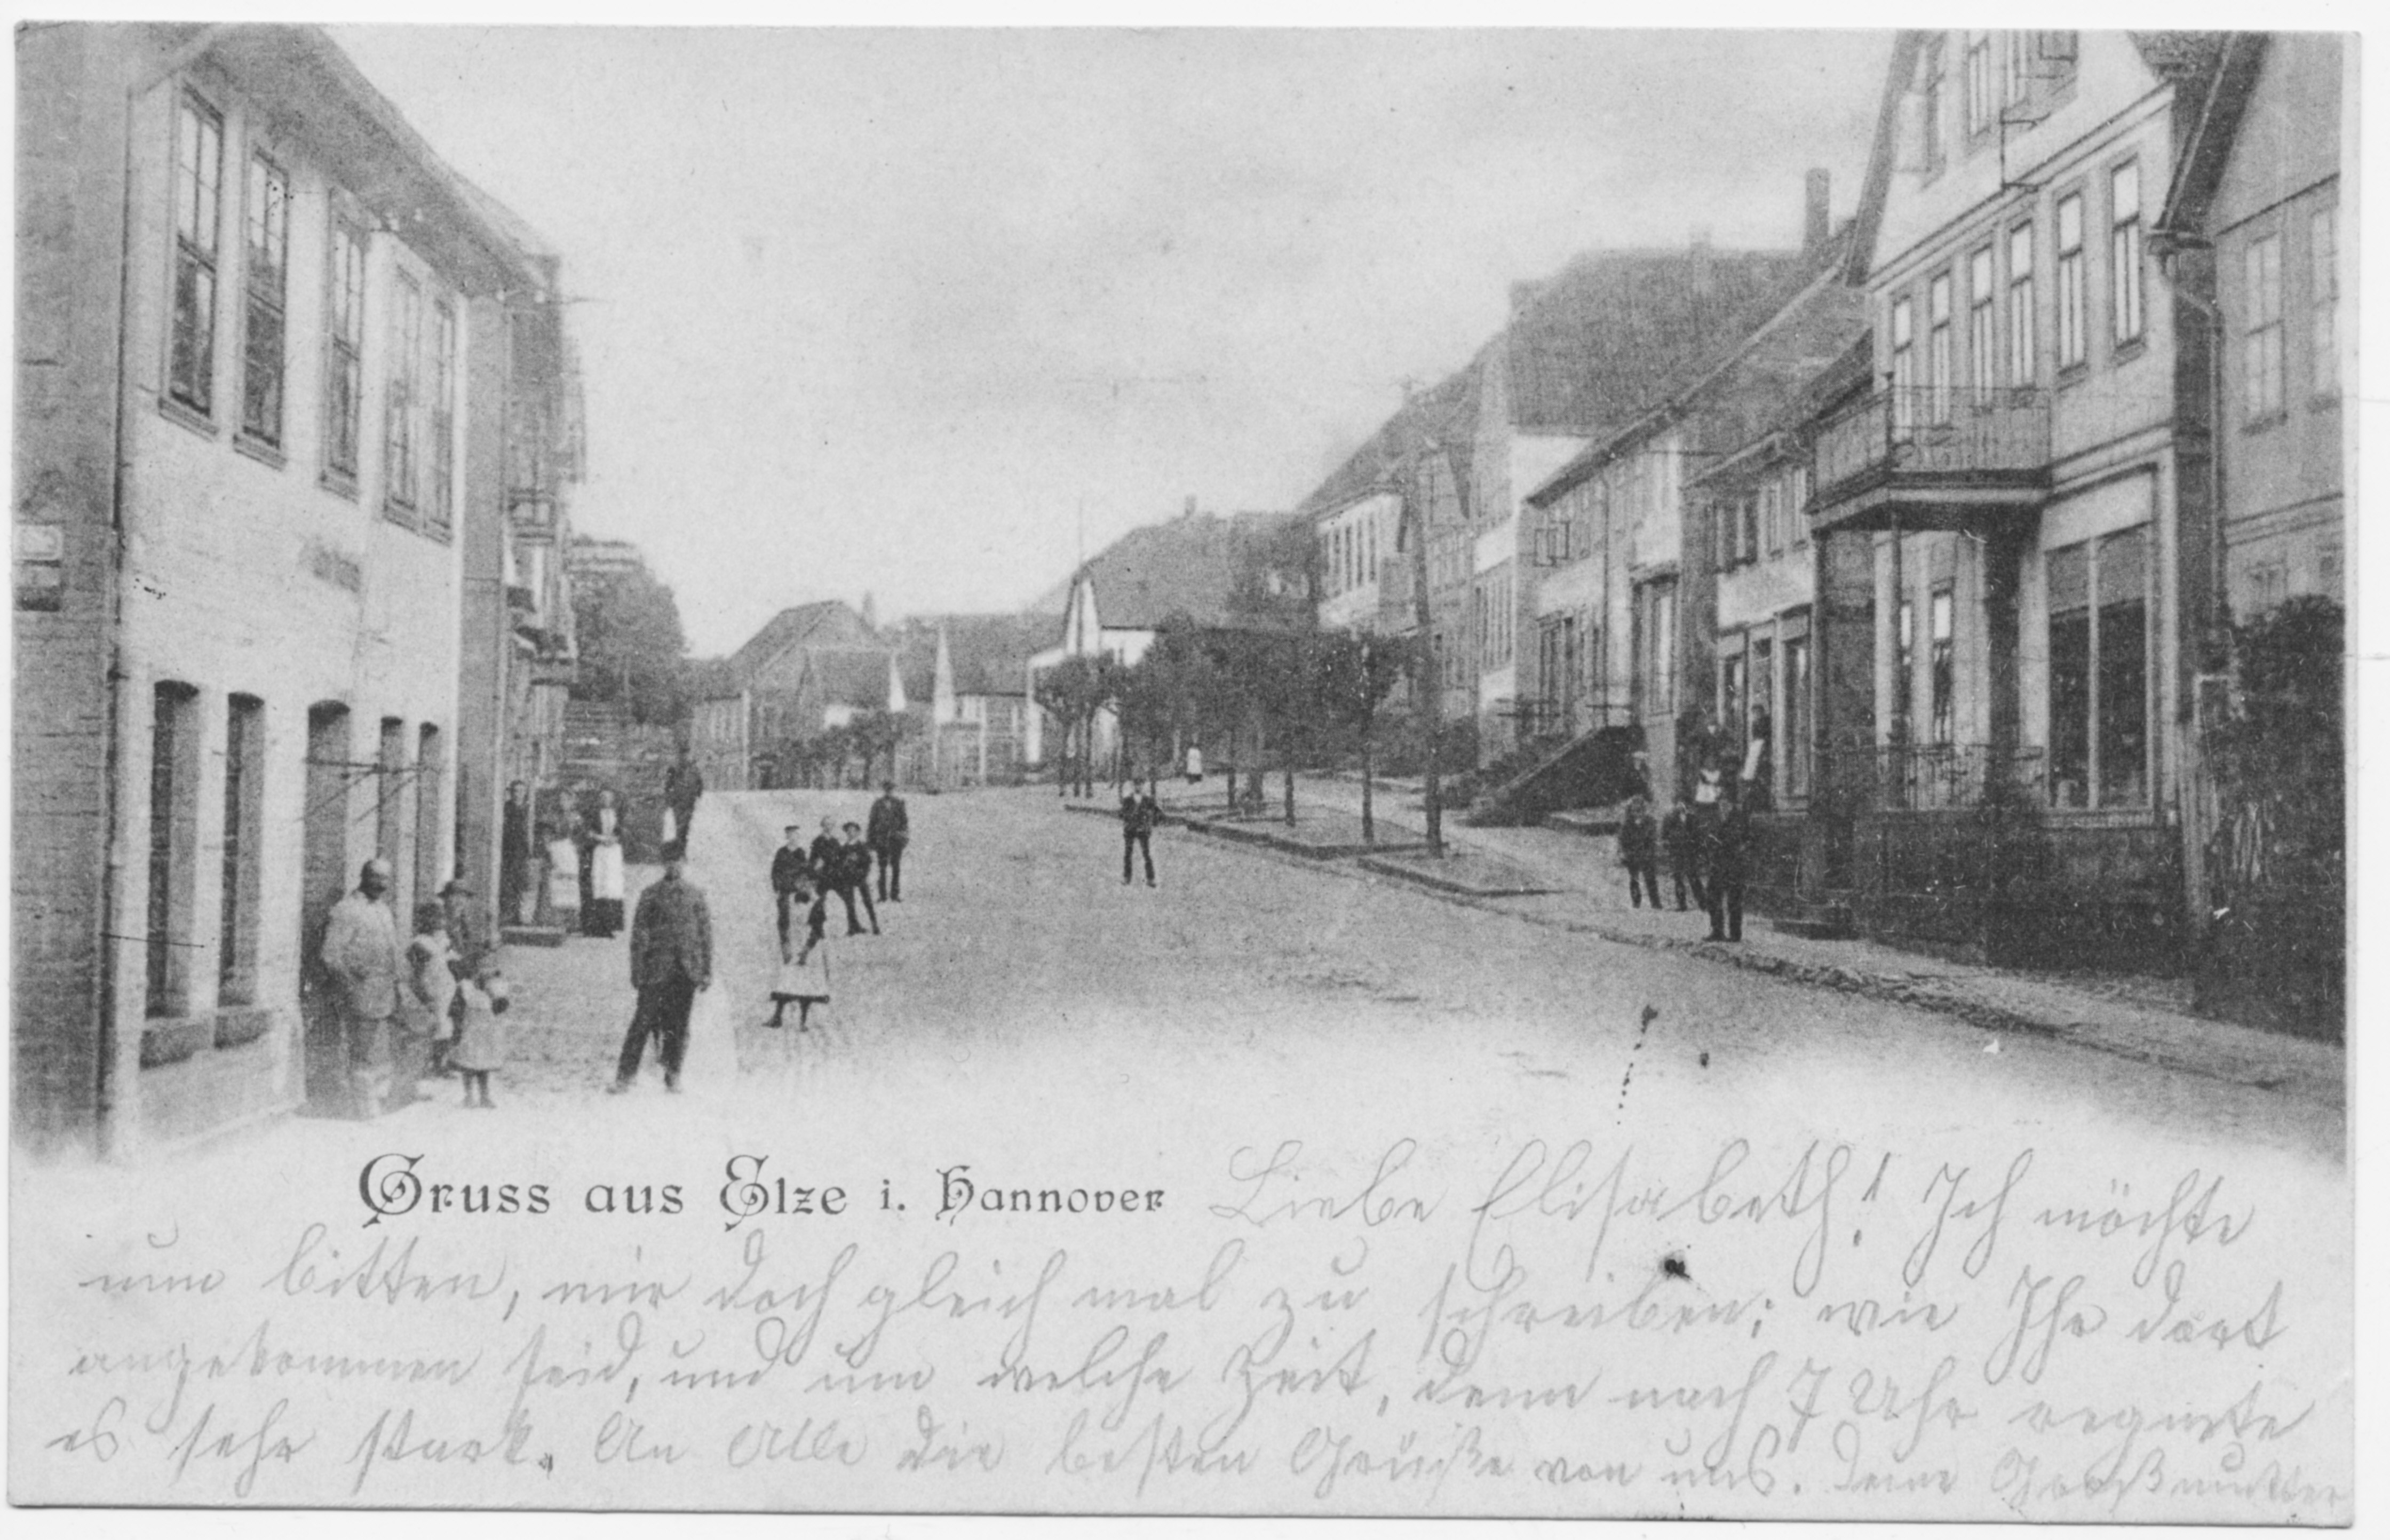 Gruss aus Elze i. Hannover Liebe Elisabeth! Ich möchte
nun bitten, mir doch gleich mal zu schreiben; wie Ihr dort
angekommen seid, und um welche Zeit, denn nach 7 Uhr regnete
es sehr stark. An Alle die besten Grüße von uns. Deine Großmutter